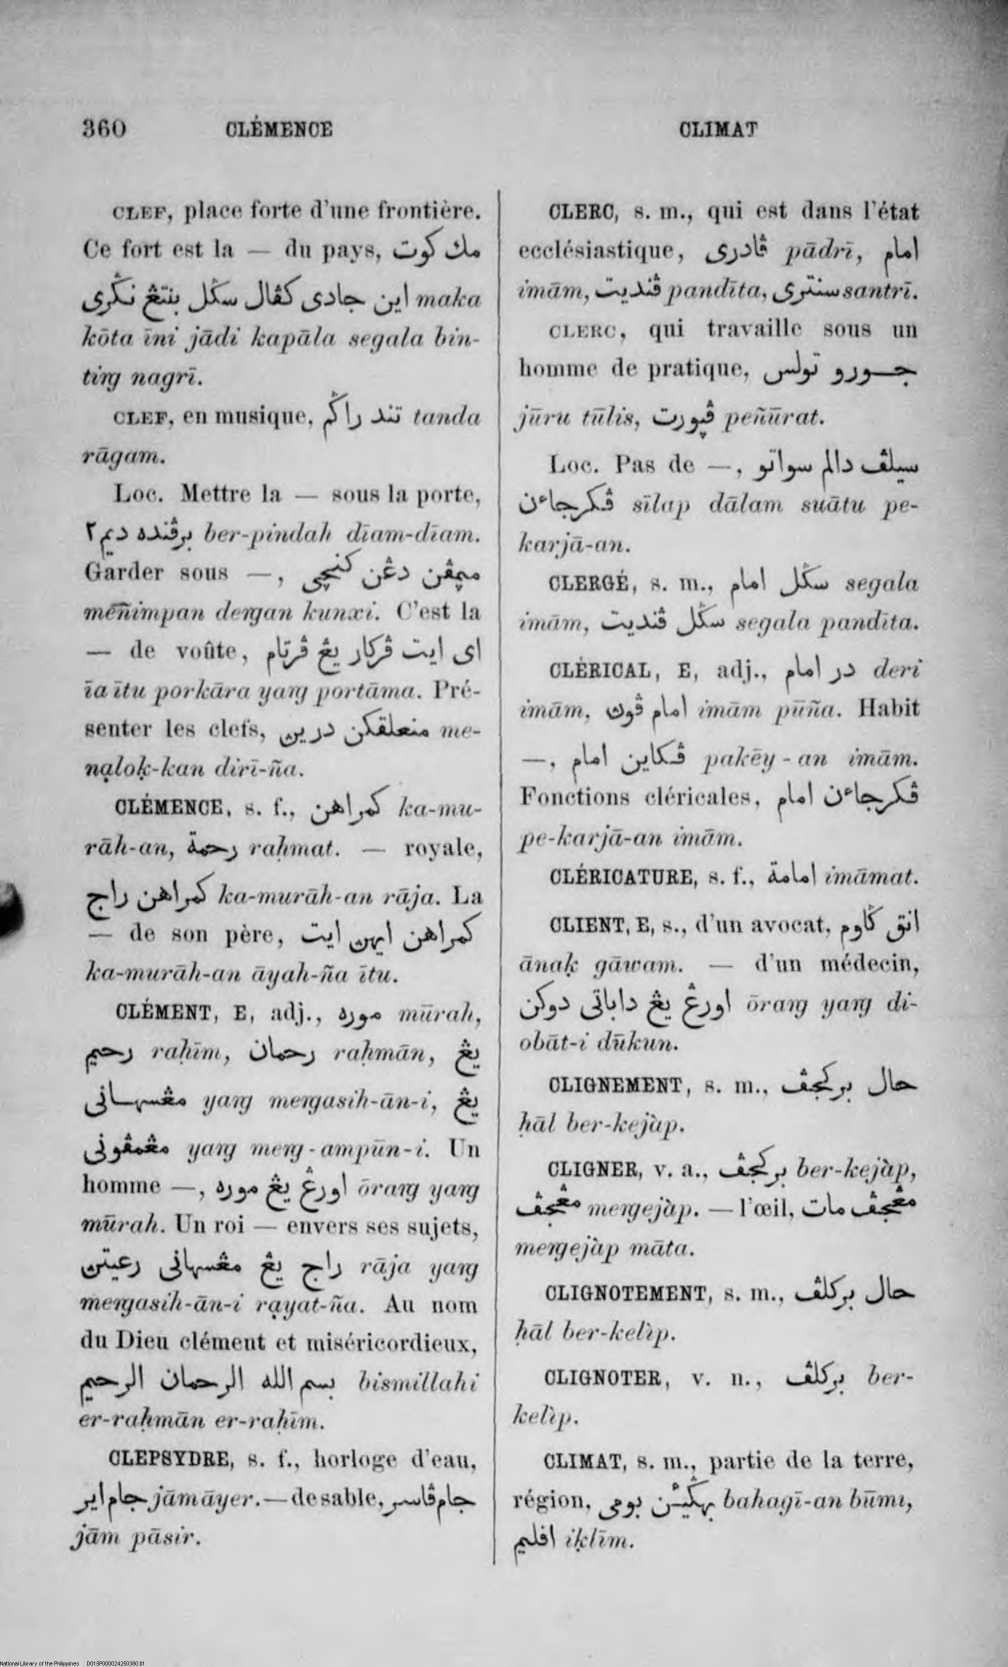 360 CLÉMENCE CLIMAT
CLEF, place forte d'une frontière.
Ce fort est la — du pays, مك كوت
اين جادى كڤال سݢل بنتڠ نݢرى maka
kōta īni jādi kapāla segala bin-
tiŋ nagrī.
CLEF, en musique, تند راݢم tanda
rāgam.
Loc. Mettre la — sous la porte,
برڤنده ديم٢ ber-pindah dīam-dīam.
Garder sous —, مڽمڤن دڠن كنچى
meñimpan deŋan kunxi. C'est la
— de voûte, اى ايت ڤركار يڠ ڤرتام
īa ītu porkāra yaŋ portāma. Pré-
senter les clefs, منعلقكن درين me-
nạloḳ-kan dirī-ña.
CLÉMENCE, s. f., كمراهن ka-mu-
rāh-an, رحمة raḥmat. — royale,
كمراهن راج ka-murāh-an rāja. La
— de son père, كمراهن ايهن ايت
ka-murāh-an āyah-ña ītu.
CLÉMENT, E, adj., موره mūrah,
رحيم raḥīm, رحمان raḥmān, يڠ
مڠسهانى yaŋ meŋasih-ān-i, يڠ
مڠمڤونى yaŋ meŋ-ampūn-i. Un
homme —, اورڠ يڠ موره ōraŋ yaŋ
mūrah. Un roi — envers ses sujets,
راج يڠ مڠسهانى رعيتن rāja yaŋ
meŋasih-ān-i rạyat-ña. Au nom
du Dieu clément et miséricordieux,
بسم الله الرحمان الرحيم bismillahi
er-raḥmān er-raḥīm.
CLEPSYDRE, s. f., horloge d'eau,
جام اير jām āyer. — de sable, جام ڤاسر
jām pāsir.
CLERC, s. m., qui est dans l'état
ecclésiastique, ڤادرى pādrī, امام
imām, ڤنديت pandīta, سنترى santrī.
CLERC, qui travaille sous un
homme de pratique, جورو تولس
jūru tūlis, ڤڽورت peñūrat.
Loc. Pas de —, سيلڤ دالم سواتو
ڤكرجاءن sīlap dālam suātu pe-
karjā-an.
CLERGÉ, s. m., سݢل امام segala
imām, سݢل ڤنديت segala pandīta.
CLÉRICAL, E, adj., در امام deri
imām, امام ڤوڽ imām pūña. Habit
—, ڤكاين امام pakēy-an imām.
Fonctions cléricales, ڤكرجاءن امام
pe-karjā-an imām.
CLÉRICATURE, s. f., امامة imāmat.
CLIENT, E, s., d'un avocat, انق ݢاوم
ānaḳ gāwam. — d'un médecin,
اورڠ يڠ داباتى دوكن ōraŋ yaŋ di-
obāt-i dūkun.
CLIGNEMENT, s. m., حال بركجڤ
ḥāl ber-kejàp.
CLIGNER, v. a., بركجڤ ber-kejàp,
مڠجڤ meŋejàp. — l'œil, مڠجڤ مات
meŋejàp māta.
CLIGNOTEMENT, s. m., حال بركلڤ
ḥāl ber-kelìp.
CLIGNOTER, v. n., بركلڤ ber-
kelìp.
CLIMAT, s. m., partie de la terre,
région, بهݢيئن بومى bahagī-an būmi,
اقليم iḳlīm.
National Library of the Philippines